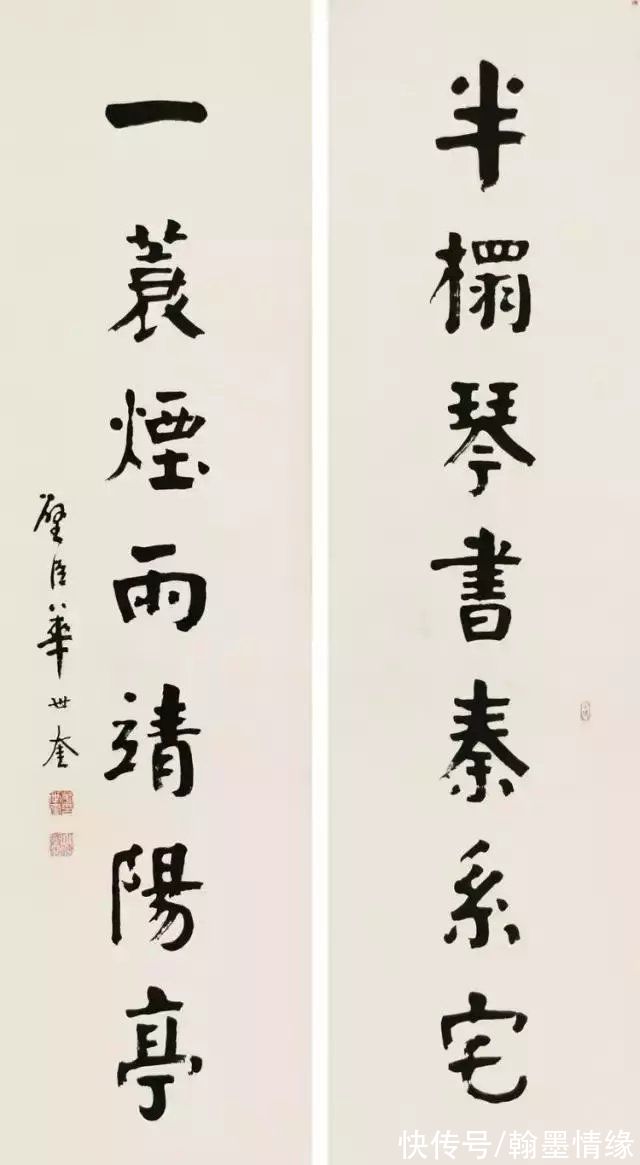 半榻琴書秦系宅
一蓑煙雨靖陽亭
璧臣華世奎
快传号/翰墨情缘